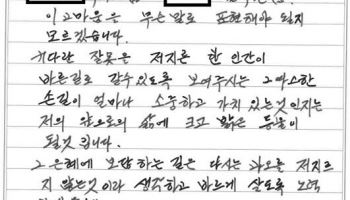 이 고마움은 무슨 말로 표현해야 될지
모르겠습니다.
커다란 잘못은 저지른 한 인간이
바른길로 갈수 있도록 보여주시는 그 따스한
손길이 얼마나 소중하고 가치 있는것 인지는
저의 앞으로의 삶에 크고 밝은 등불이
될것 입니다.
그 은혜에 보답하는 길은 다시는 과오를 저지르
지 않는것 이라 생각하고 바르게 살도록 노력